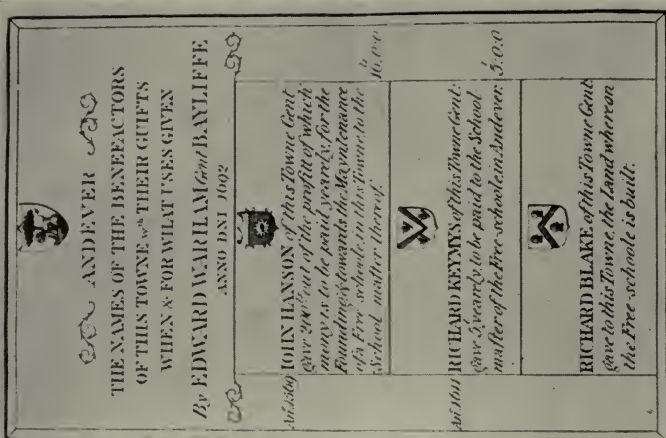 ANDEVER
THE NAMES OF THE BENEFACTORS
OF THIS TOWNE wth THEIR GUIFTS
WHEN & FOR WHAT USES GIVEN
By EDWARD WARHAM Gent BAYLIFFE
ANNO DNI 1692
An: 1569 IOHN HANSON of this Towne Gent
gave 200 out of the profitt of which
mony is to be paid yearely, for the
Founding & towards the Mayntenance
of a Free schoole in this Towne, to the
School master thereof. 16.0.0
An: 1611 RICHARD KEYMYS of this Towne Gent:
gave 5 yearely, to be paid to the School
master of the Free schoole in Andever. 5.0.0
RICHARD BLAKE of this Towne Gent:
gave to this Towne the Land whereon
the Free-schoole is built.